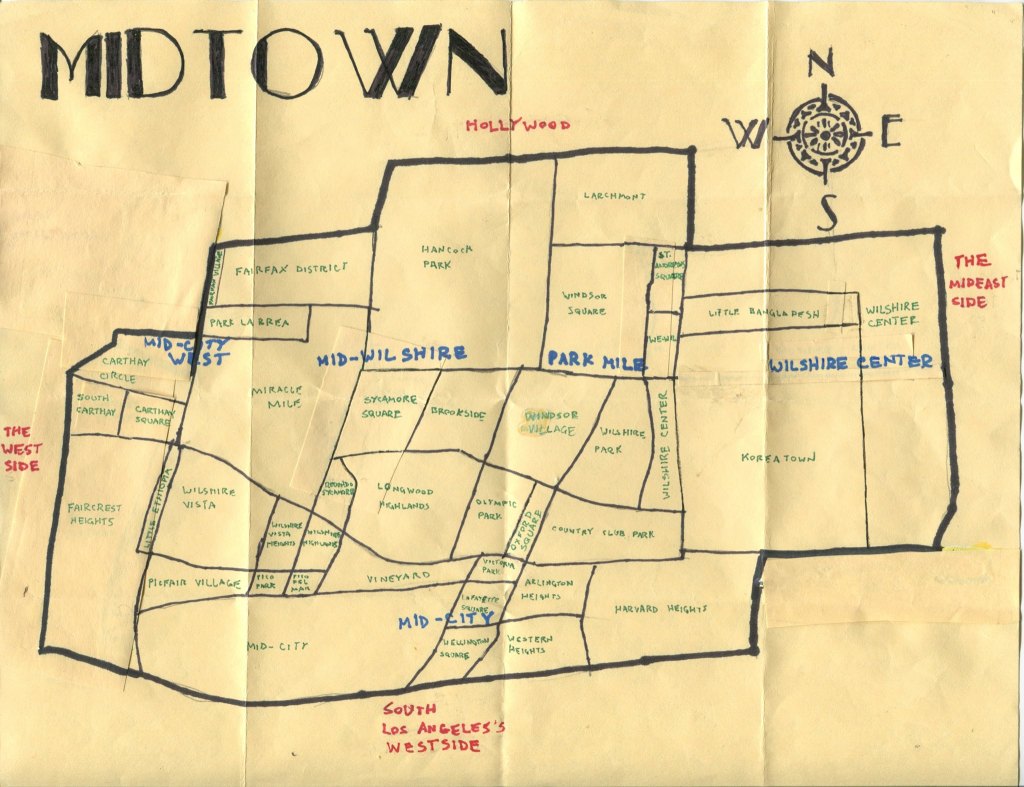 MIDTOWN
N
W
E
S
HOLLYWOOD
LARCHMONT
HANCOCK
PARK
ST.
ANDREWS
SQUARE
FAIRFAX VILLAGE
FAIRFAX DISTRICT
THE
MIDEAST
SIDE
WINDSOR
SQUARE
LITTLE BANGLADESH
WILSHIRE
CENTER
PARK LA BREA
WE-WIL
MID-CITY
WEST
MID-WILSHIRE
PARK MILE
WILSHIRE CENTER
CARTHAY
CIRCLE
SOUTH
CARTHAY
CARTHAY
SQUARE
MIRACLE
MILE
SYCAMORE
SQUARE
BROOKSIDE
WINDSOR
VILLAGE
WILSHIRE
PARK
WILSHIRE CENTER
KOREATOWN
THE
WEST
SIDE
FAIRCREST
HEIGHTS
LITTLE ETHIOPIA
WILSHIRE
VISTA
WILSHIRE
VISTA
HEIGHTS
WILSHIRE
HIGHLAND
SYCAMORE
LONGWOOD
HIGHLANDS
OLYMPIC
PARK
OXFORD
SQUARE
COUNTRY CLUB PARK
PICFAIR VILLAGE
PICO
PARK
PICO
DEL
MAR
VINEYARD
VICTORIA
PARK
ARLINGTON
HEIGHTS
HARVARD HEIGHTS
LAFAYETTE
SQUARE
MID-CITY
MID-CITY
WELLINGTON
SQUARE
WESTERN
HEIGHTS
SOUTH
LOS ANGELES'S
WESTSIDE